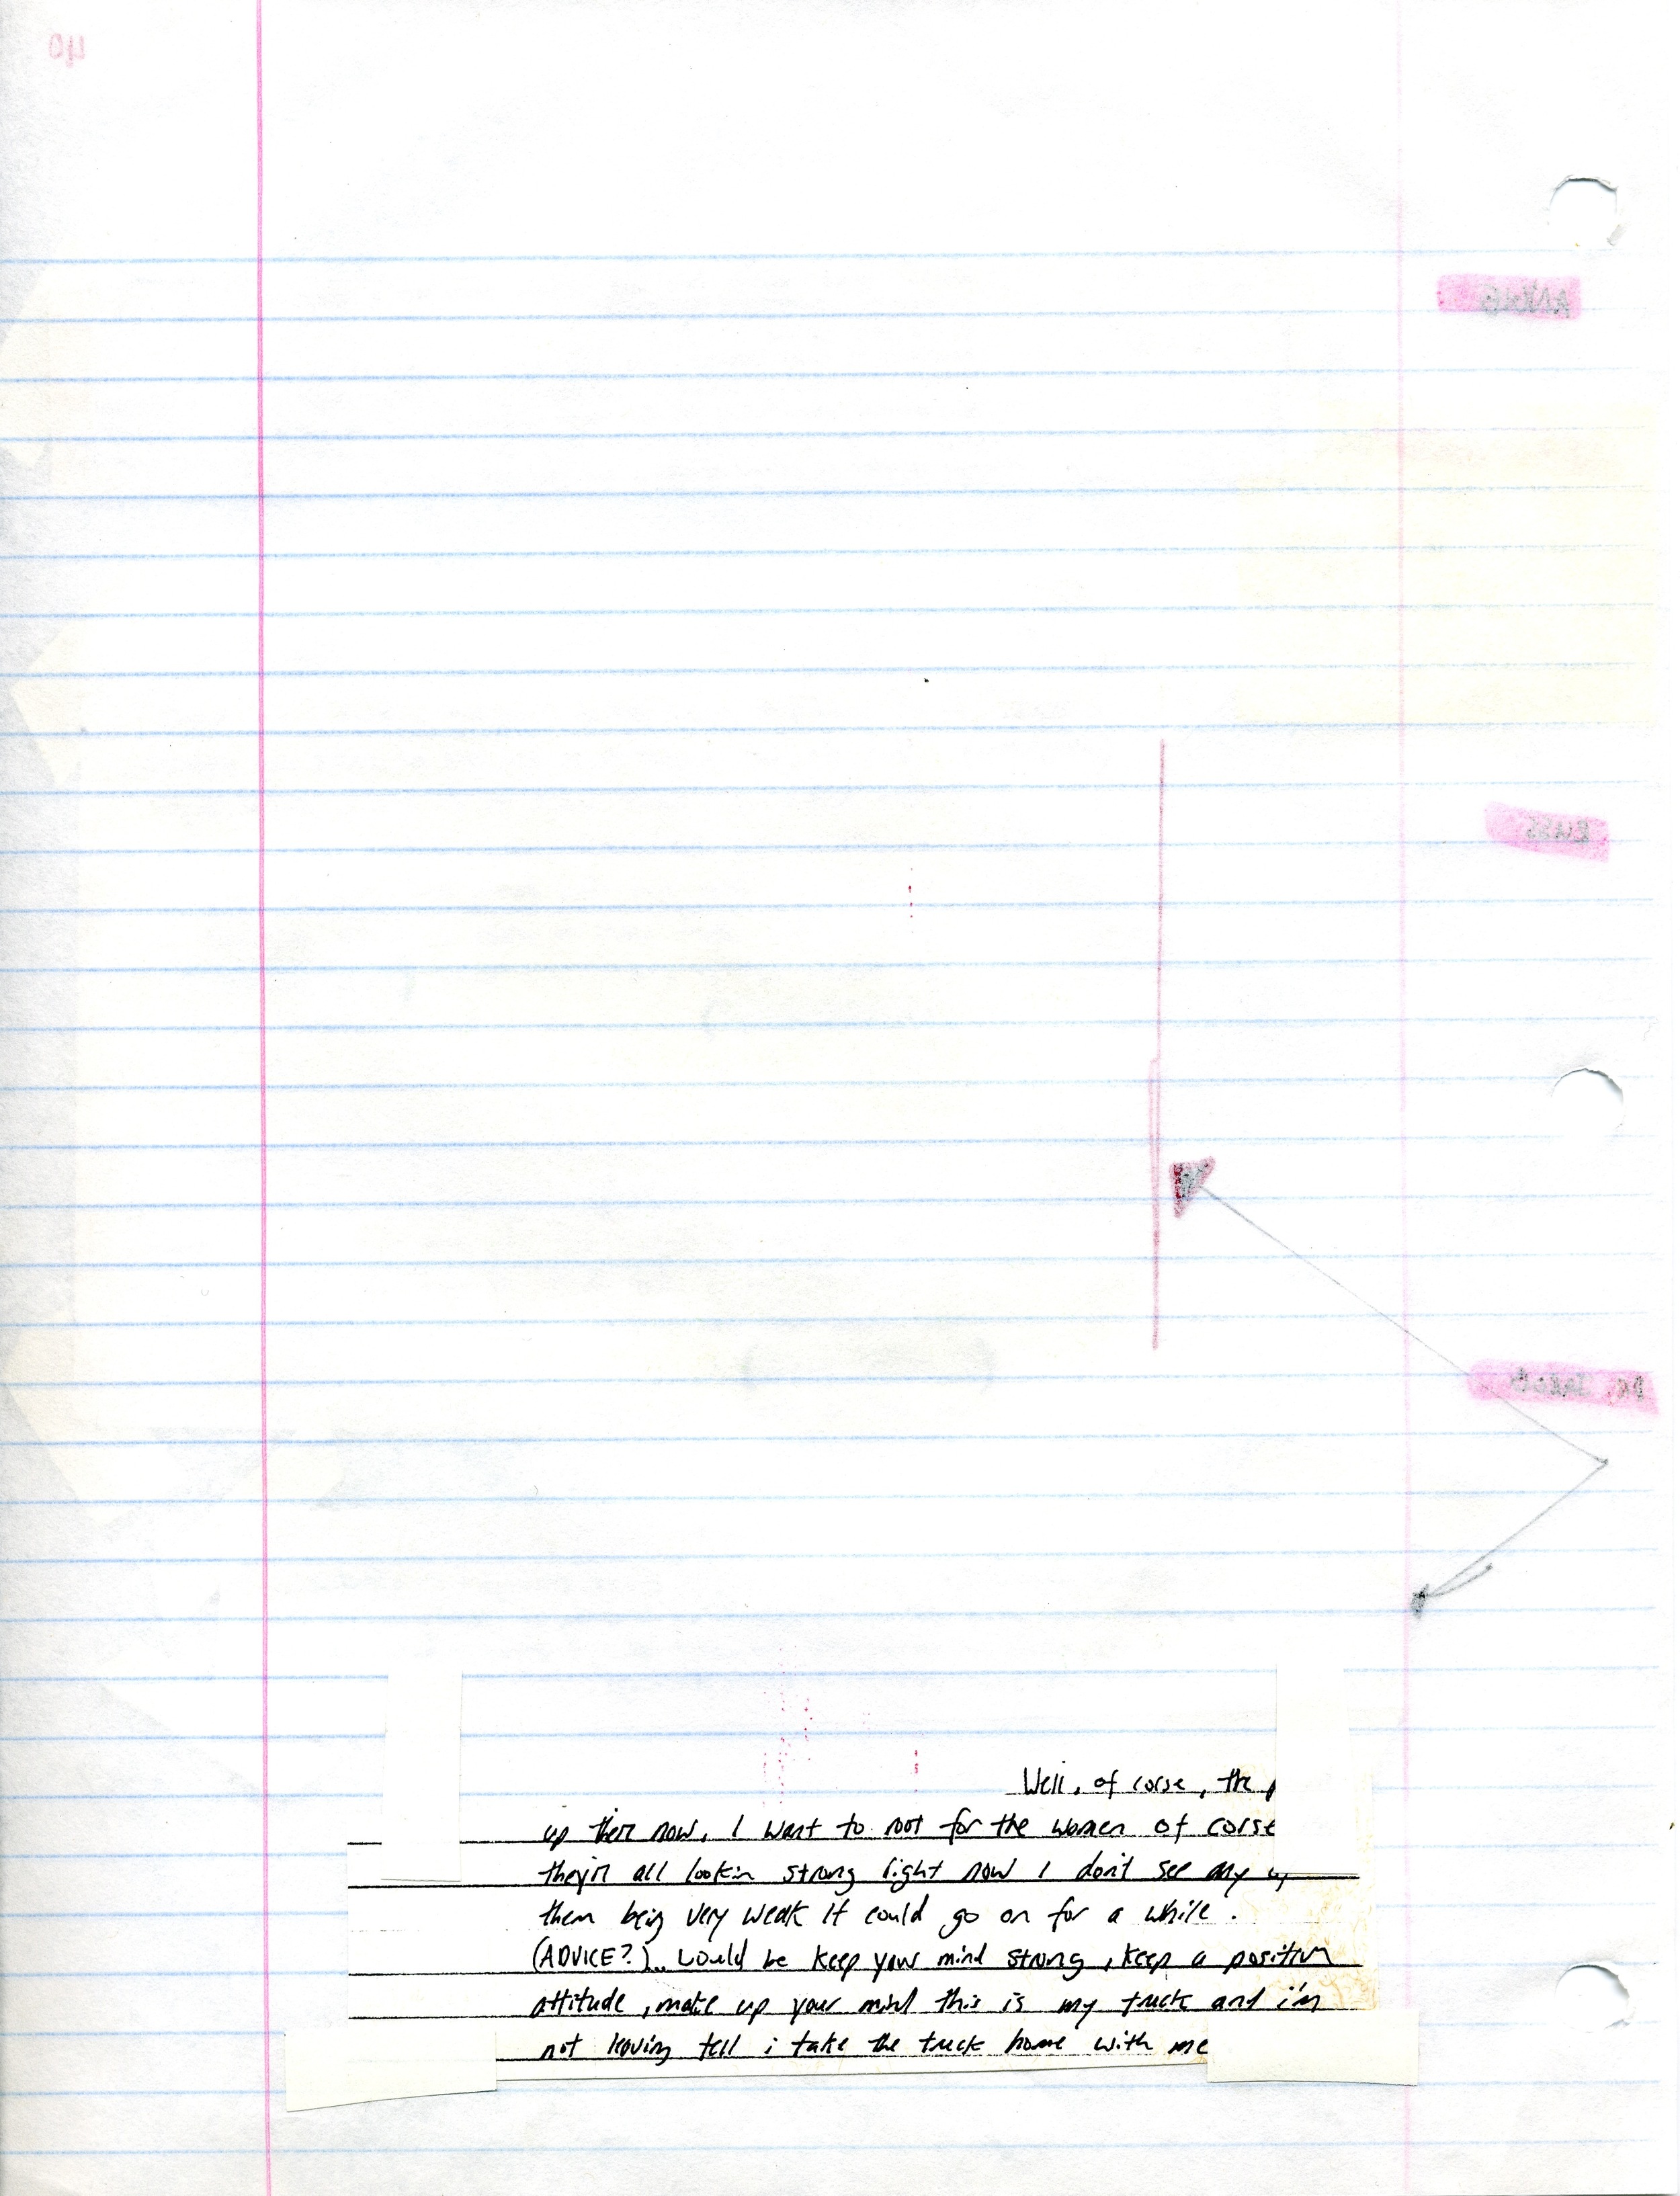 Well, of corse, the
up ther now, I want to root for the women of corse
they'r all lookin strong right now I don't see any
them being very weak it could go on for a while.
(ADVICE?)... would be keep your mind strong, keep a positive
attitude, make up your mind this is my truck and i'm
not leaving tell i take the truck home with me